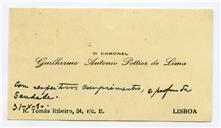 O CORONEL
Guilherme Antonio Pottier de Lima
Com respeitosos cumprimentos, e profunda
Saudade.
31-X-
R. Tomás Ribeiro, 54, r/c. E.
LISBOA